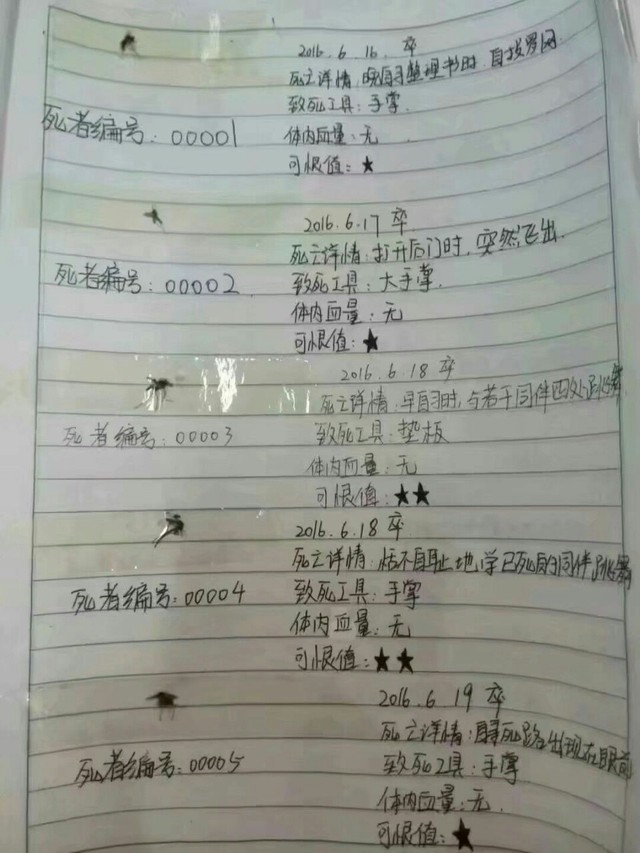 2016.6.16.卒
死亡详情:晚自习整理书时,自投罗网
致死工具:手掌.
死者编号:00001
体内血量:无
可恨值:★
2016.6.17卒
死亡详情:打开后门时,突然飞出.
死者编号:00002
致死工具:大手掌.
体内血量:无
可恨值:★
2016.6.18卒
死亡详情:早自习时,与若干同伴四处跳舞
死者编号:00003
致死工具:垫板
体内血量:无
可恨值:★★
2016.6.18卒
死亡详情:恬不自耻地,学已死的同伴跳舞
死者编号:00004
致死工具:手掌
体内血量:无
可恨值:★★
2016.6.19卒
死亡详情:自寻死路出现在眼前
死者编号:00005
致死工具:手掌
体内血量:无.
可恨值:★